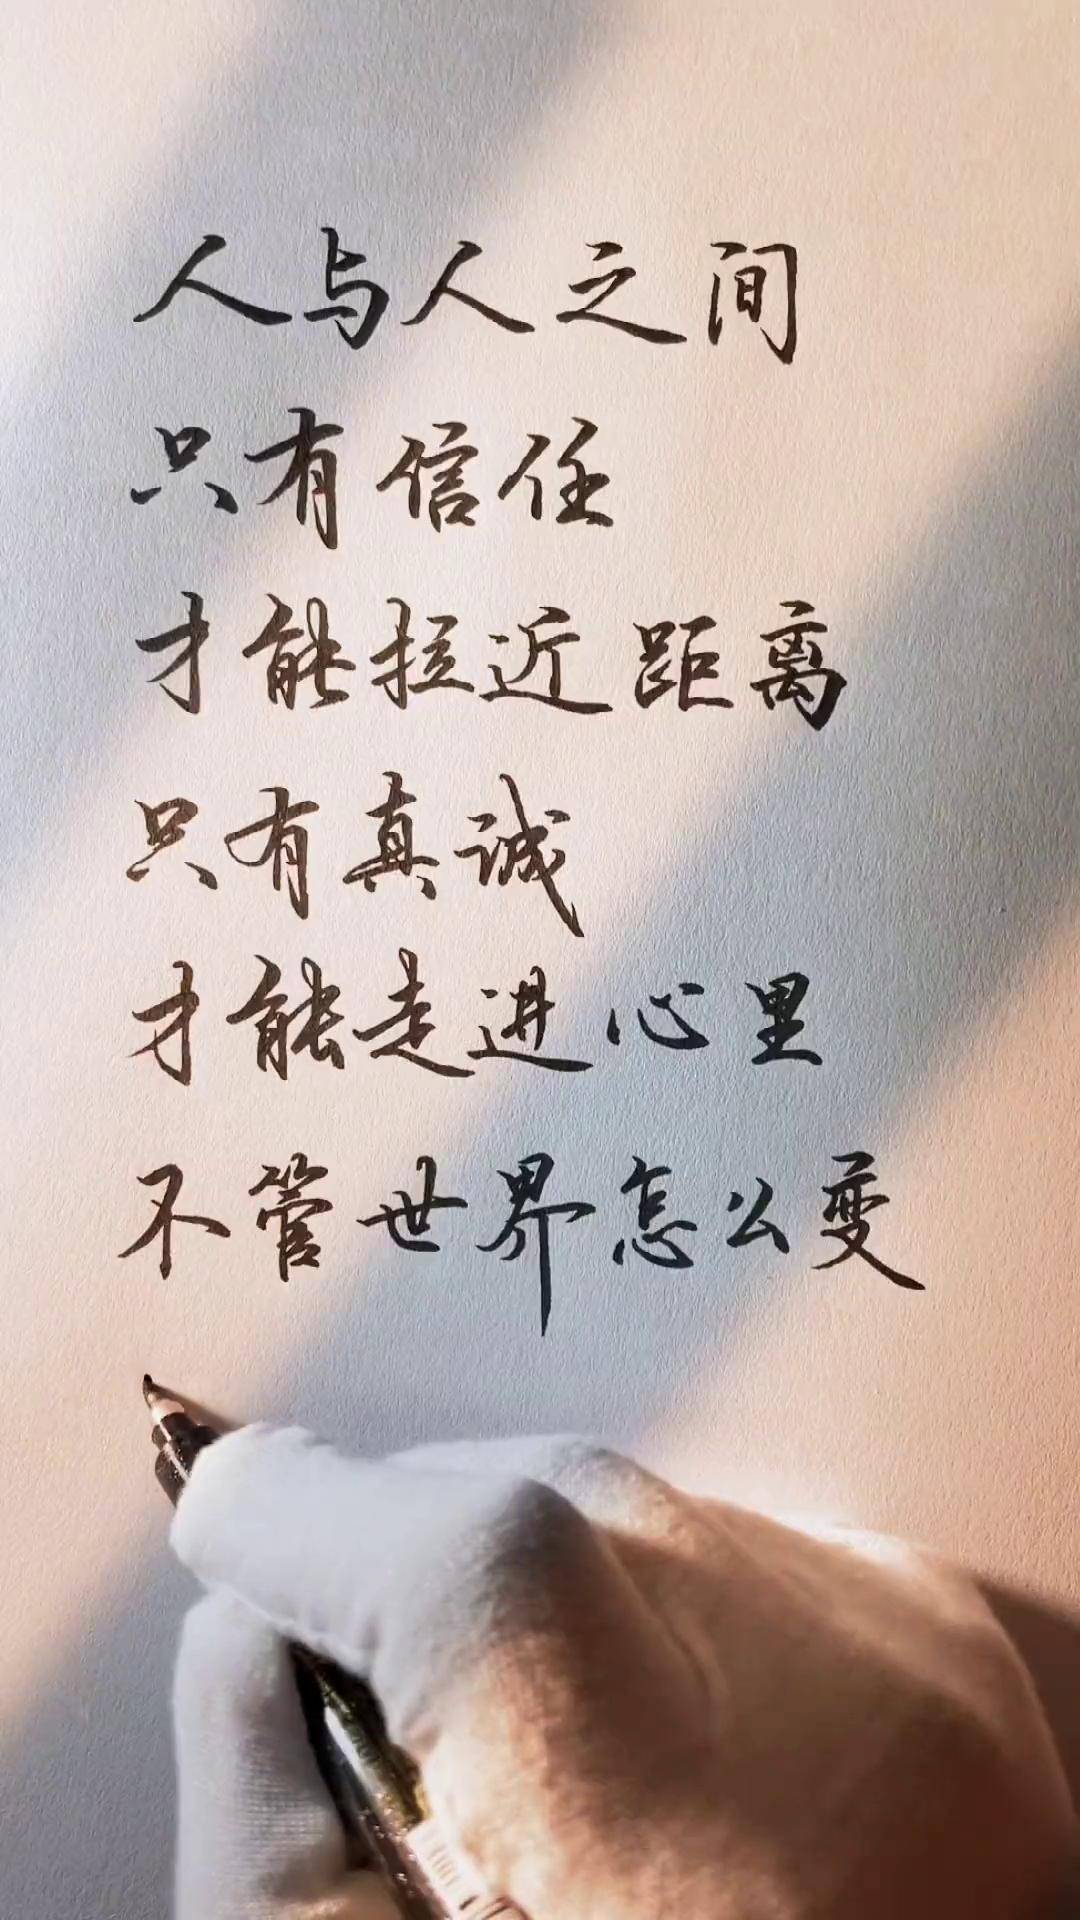 人与人之间
只有信任
才能拉近距离
只有真诚
才能走进心里
不管世界怎么变